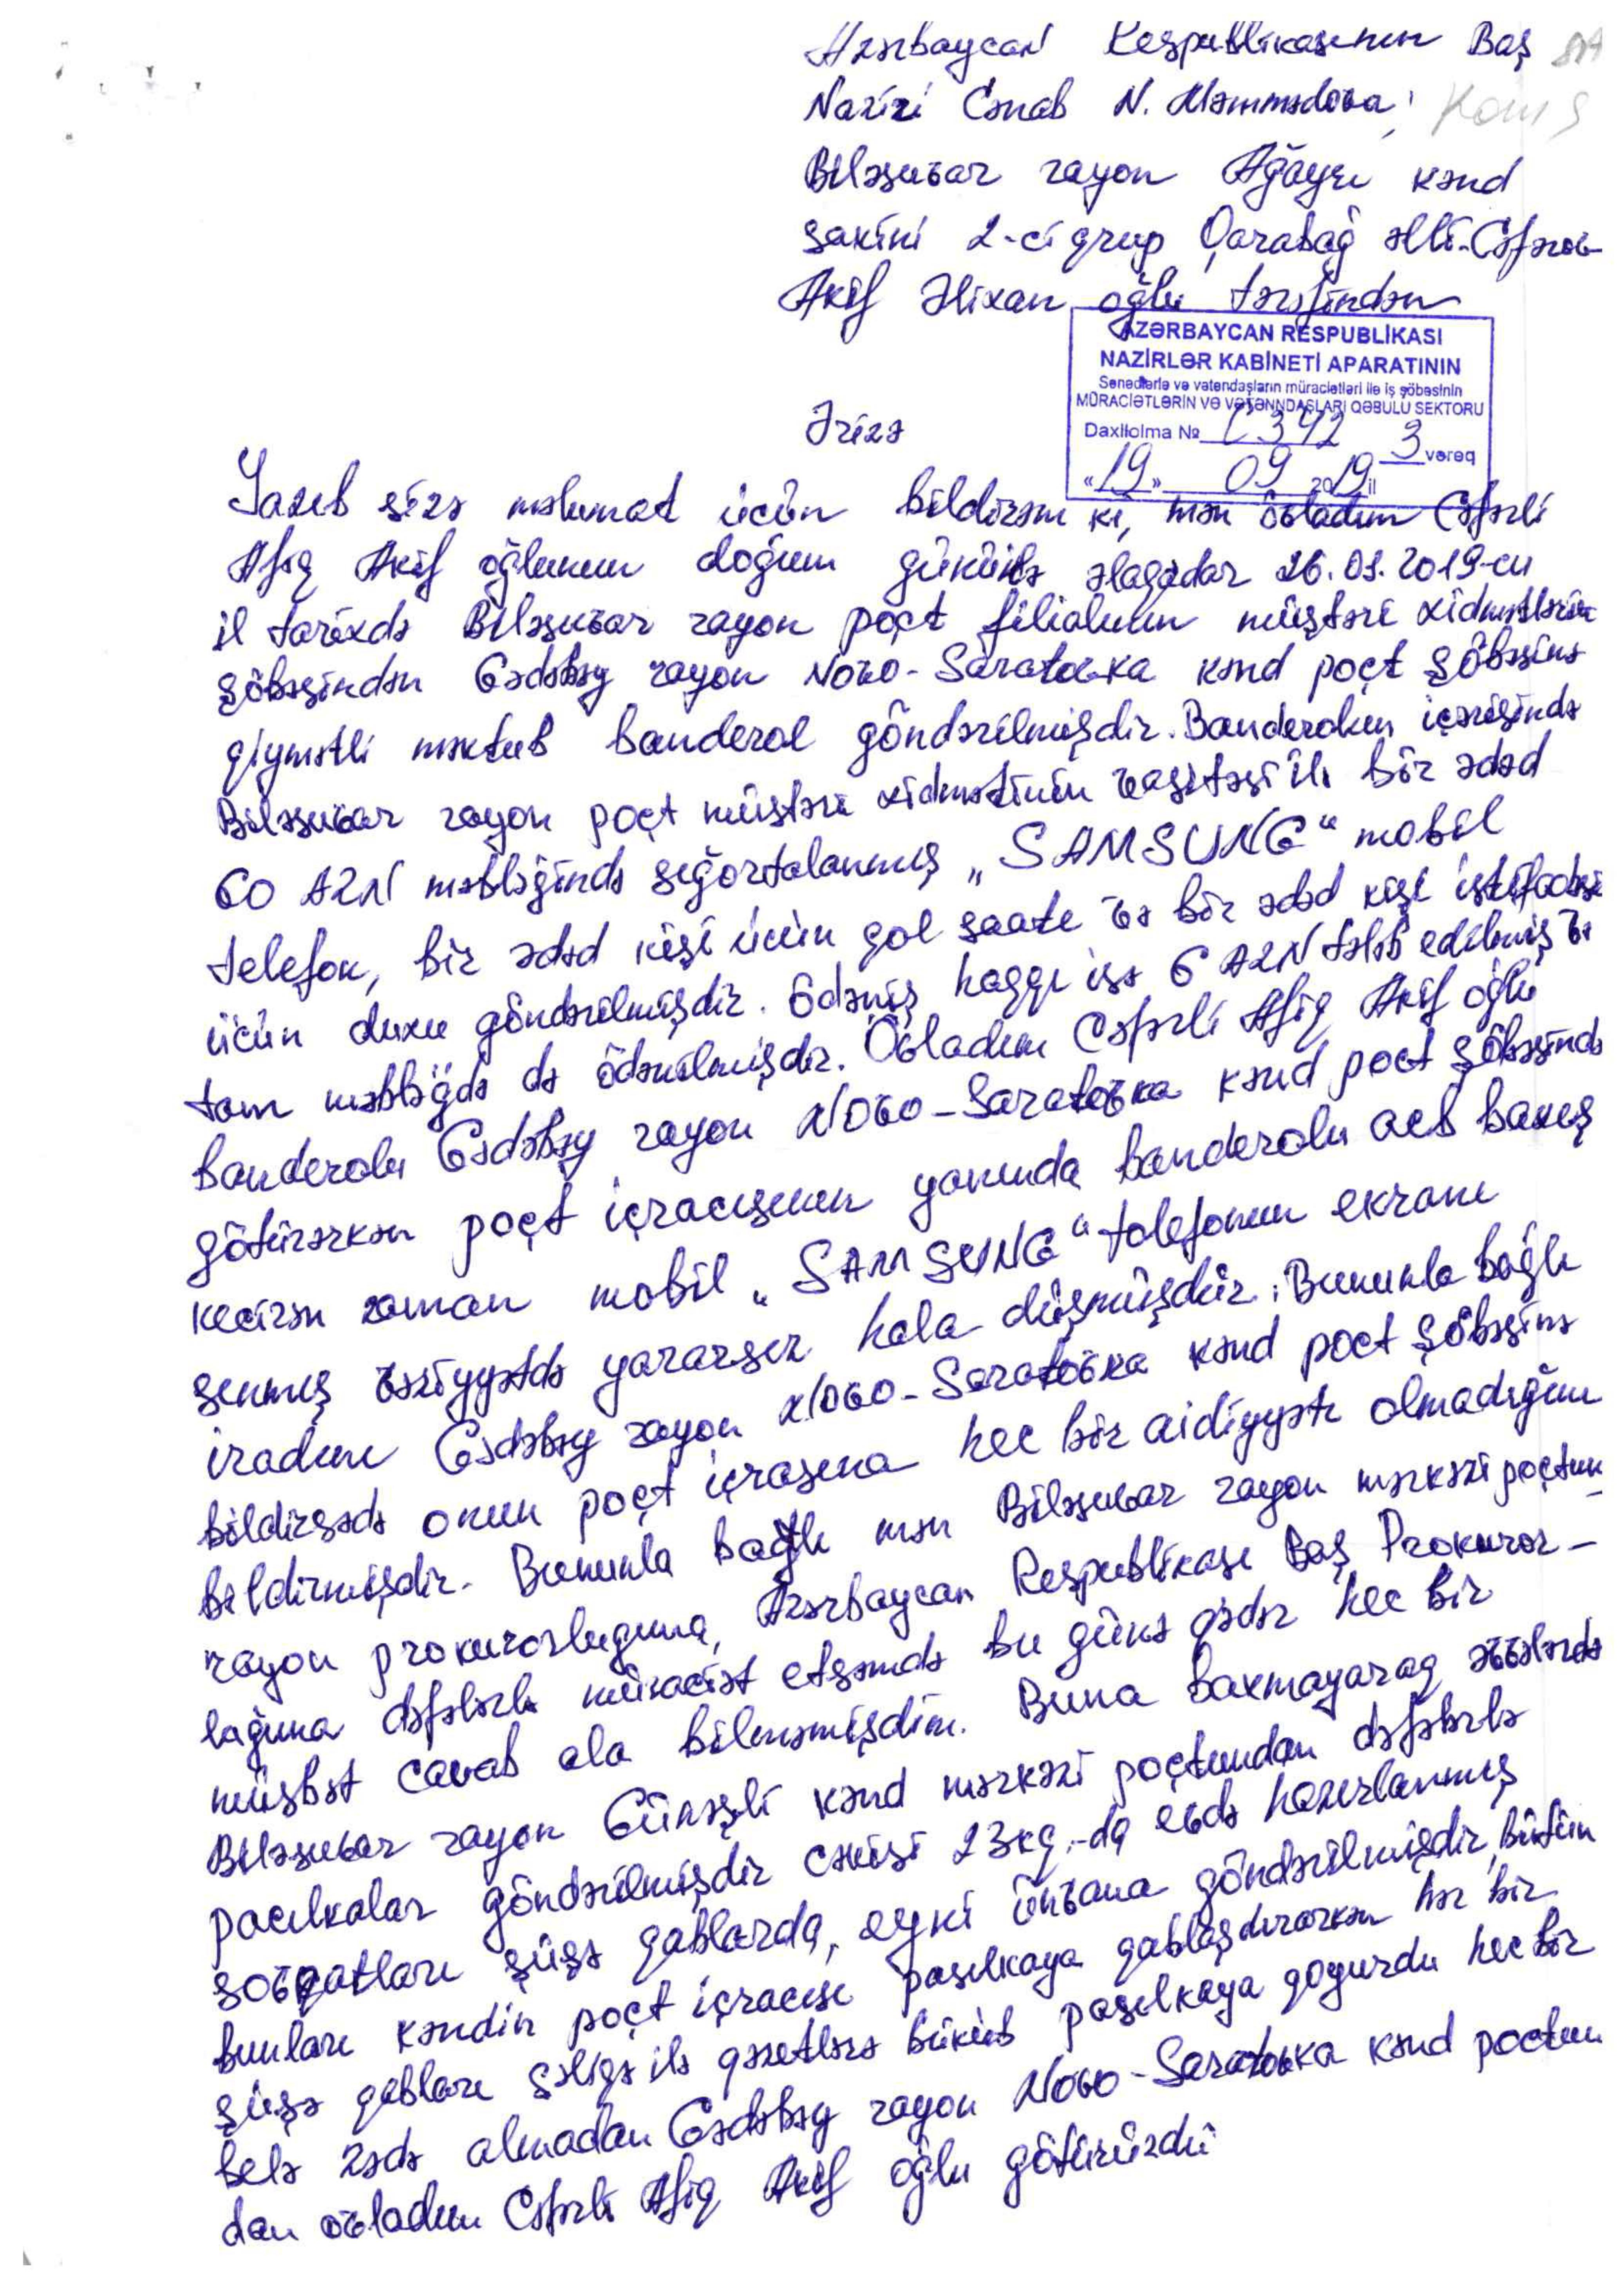 Azərbaycan Respublikasının Baş
Naziri Cənab N. Məmmədova,
Biləsuvar rayon Ağayrı kənd
sakini 2-ci qrup Qarabağ əlili Cəfərov
Akif Əlixan oğlu tərəfindən
AZƏRBAYCAN RESPUBLİKASI
NAZİRLƏR KABİNETİ APARATININ
Sənədlərlə və vətəndaşların müraciətləri ilə iş şöbəsinin
MÜRACİƏTLƏRİN VƏ VƏTƏNNDAŞLARI QƏBULU SEKTORU
Daxilolma № C342 3 vərəq
«19» 09 2019 il
Ərizə
Yazıb sizə məlumat ücün bildirəm ki, mən övladım Cəfərli
Afiq Akif oğlunun doğum günüilə əlaqədar 26.01.2019-cu
il tarixdə Biləsuvar rayon poçt filialının müştəri xidmətlərin
şöbəsindən Gədəbəy rayon Novo-Saratovka kənd poçt şöbəsinə
qiymətli məktub banderol göndərilmişdir. Banderolun içərisində
Biləsuvar rayon poçt müştəri xidmətinin vasitəsi ilə bir ədəd
60 AZN məbləğində sığortalanmış „SAMSUNG“ mobil
telefon, bir ədəd kişi ücün qol saatı və bir ədəd kişi istifadəsi
ücün duxu göndərilmişdir. Ödəniş haqqı isə 6 AZN tələb edilmiş və
tam məbləğdə də ödənilmişdir. Övladım Cəfərli Afiq Akif oğlu
banderolu Gədəbəy rayon Novo-Saratovka kənd poct şöbəsində
götürərkən poçt içracısının yanında banderolu acıb baxış
kecirən zaman mobil „SAMSUNG“ telefonun ekranı
sınmış vəziyyətdə yararsız hala düşmüşdür. Bununla bağlı
iradını Gədəbəy rayon Novo-Saratovka kənd poct şöbəsinə
bildirsədə onun poçt içrasına hec bir aidiyyatı olmadığını
bildirmişdir. Bununla bağlı mən Biləsuvar rayon mərkəzi poçtun
rayon prokurorluguna, Azərbaycan Respublikası Baş Prokuror-
luğuna dəfələrlə müraciət etsəmdə bu günə qədər hec bir
müsbət cavab ala bilməmişdim. Buna baxmayaraq əvvələrdə
Biləsuvar rayon Günəşli kənd mərkəzi poçtundan dəfələrlə
pacılkalar göndərilmişdir cəkisi 23 kq.-da evdə hazırlanmış
sovqatları şüşə qablarda, eyni ünvana göndərilmişdir, bütün
bunları kəndin poçt içracısı pasılkaya qablaşdırarkən hər bir
şüşə qabları səliqə ilə qəzetlərə büküb pasılkaya qoyurdu hec bir
belə zədə almadan Gədəbəy rayon Novo-Saratovka kənd poctun
dan övladım Cəfərli Afiq Akif oğlu götürürdü